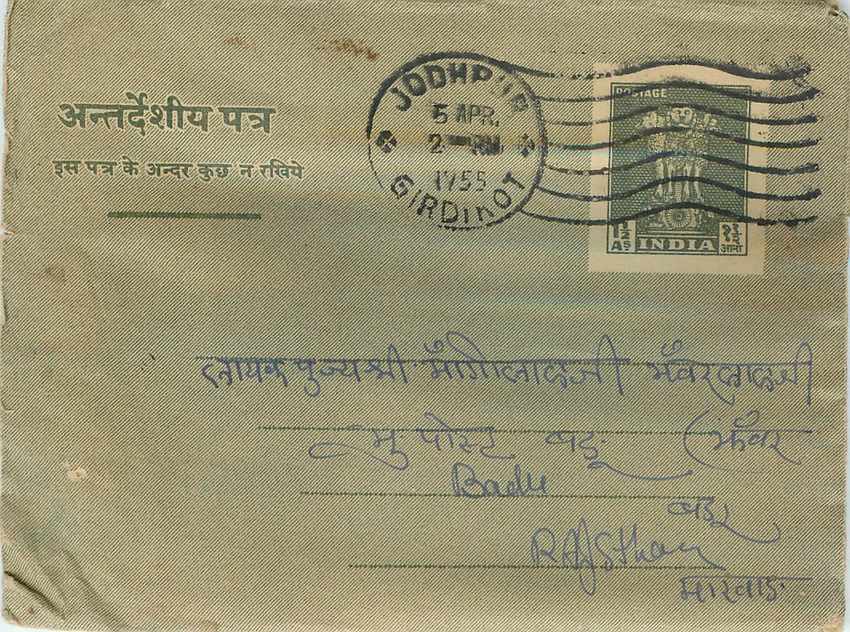 अन्तर्देशीय पत्र
इस पत्र के अन्दर कुछ न रखिये
JODHPUR
5 APR.
2
1955
GIRDIKOT
POSTAGE
1½ As INDIA १½ आना
लायक पुज्यश्री माँगीलालजी भँवरलालजी
मु पोस्ट बडू (झँवर
Badu
बडू
RAJSthan
मारवाड